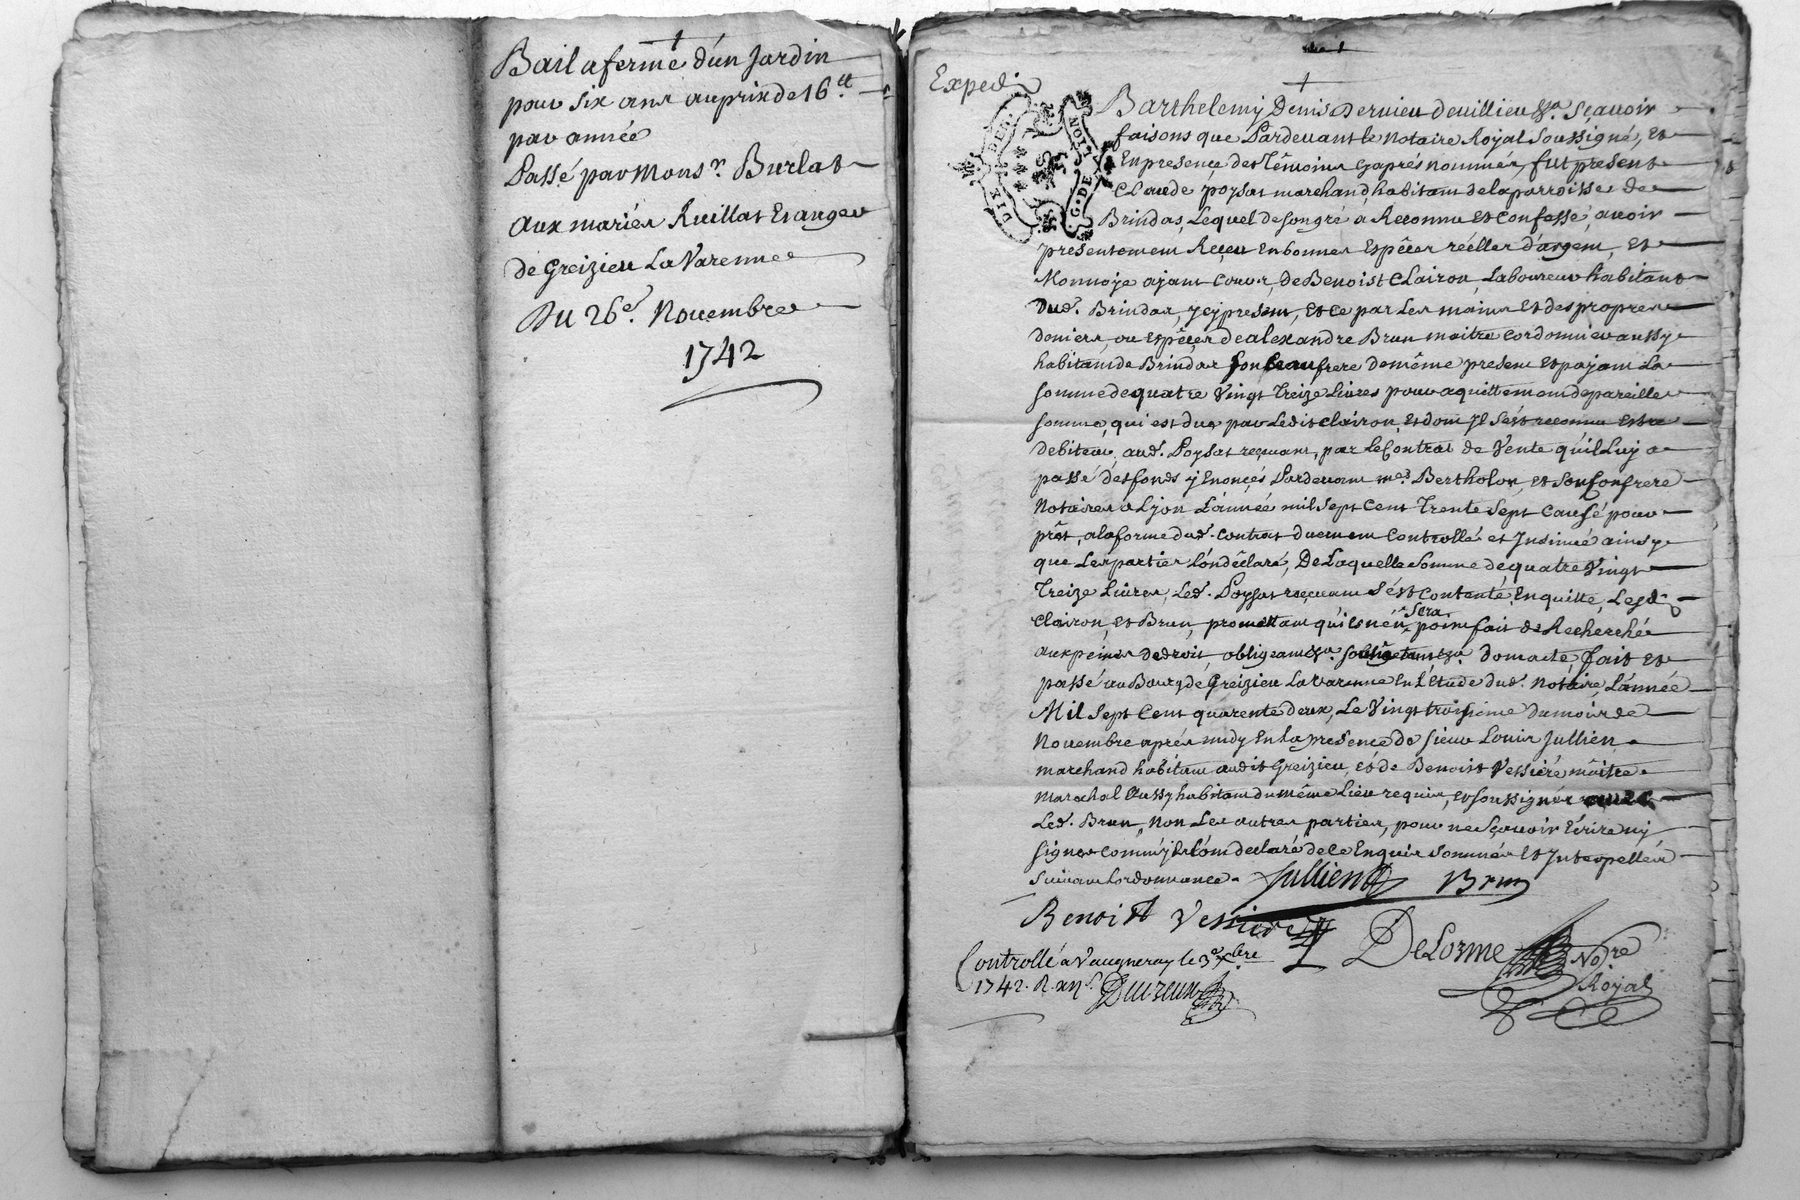 Bail a ferme d'un Jardin
pour six ans au prix de 16 tt
par année
Passé par Mons.r Burlat
aux mariés Ruillat Et auger
de Greizieu La Varenne
Du 26e. Novembre
1742
Expedi
DIX DEN.
G. DE LION
Barthelemy Denis Dervieu de Villieu &a. Sçavoir
faisons que Pardevant le Notaire Royal Soussigné, Et
En presence des Têmoins cy aprés nommés, fut present
Claude poysat marchand, habitant de la parroisse de
Brindas, Lequel de son gré a Reconnu et Confessé, avoir
presentement Reçeu En bonnes Espêces réelles d'argent, Et
Monnoye ayant Cours, de Benoist Clairon, Laboureur habitant
dud. Brindas, ycy present, et ce par Les mains Et des propres
deniers, ou espêces de alexandre Brun maitre Cordonnier aussy
habitant de Brindas son beaufrere de même present Et payant La
somme de quatre Vingt Treize Livres pour aquittement de pareille
somme, qui est due par Ledit Clairon, et dont Jl s'est reconnu Estre
debiteur aud. Poysat reçevant, par Le Contrat de Vente qu'il Luy a
passé des fonds y Enoncés Pardevant mes. Bertholon, et son Confrere
Notaires a Lyon L'année mil Sept Cent Trente Sept Causé pour
prêt, a la forme dud. Contrat duement Controllé et Jnsinué ainsy
que Les parties L'ont dêclaré, De Laquelle Somme de quatre Vingt
Treize Livres, Led. Poysat reçevant s'est Contenté, En quitte, Lesd.
Clairon, et Brun, promettant qu'il n'en
Sera
point fait de Recherche
aux peines de droit, obligeant &a. &a. dont acte, fait et
passé au Bourg de Greizieu La Varenne En L'Etude dud. Notaire, L'année
Mil Sept Cent quarente deux, Le Vingt troisieme du mois de
Novembre aprés midy En La presence de sieur Louis Jullien
marchand habitant audit Greizieu, et de Benoist Vessiere mâitre
marechal Aussy habitant du même Lieu requis, et soussignés avec
Led. Brun, Non Les autres parties, pour ne Sçavoir Ecrire ny
signer comm'jls L'ont declaré de ce Enquis sommés Et Jnterpellés
suivant Lordonnance.
Jullien Brun
Benoist Vessiere
DeLorme
No.re
Royal
Controllé a Vaugneray le 3e xbre
1742. R. xij s.